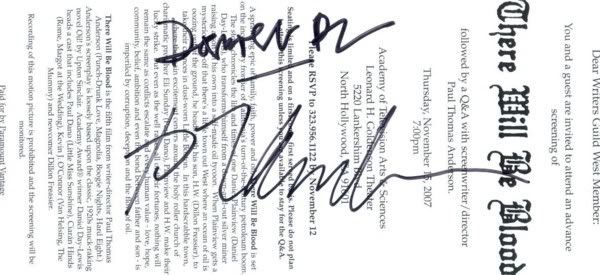 Dear Writers Guild West Member:
You and a guest are invited to attend an advance
screening of
There Will Be Blood
followed by a Q&A with screenwriter/director
Paul Thomas Anderson.
Thursday, November 15, 2007
7:00pm
Academy of Television Arts & Sciences
Leonard H. Goldenson Theater
5220 Lankershim Blvd.
North Hollywood, CA 91601
Please RSVP to 323.956.1122 by November 12
Seating is limited and on a first come first served basis. Please do not plan
this screening unless available to stay for the Q&A.
A sprawling epic of family, faith, power and oil There Will Be Blood is set
on the incendiary frontier of California's turn-of-the-century petroleum boom.
The story chronicles the life and times of one Daniel Plainview (Daniel
Day-Lewis), who transforms himself from a down-and-out silver miner
raising a son on his own into a self-made oil tycoon. When Plainview gets a
mysterious tip-off that there's a little town out West where an ocean of oil is
oozing out of the ground, he heads with his son, H.W. (Dillon Freasier), to
take their chances in dust-worn Little Boston. In this hardscrabble town,
where the main excitement centers around the holy roller church of
charismatic preacher Eli Sunday (Paul Dano), Plainview and H.W. make their
lucky strike. But even as the well raises all of their fortunes, nothing will
remain the same as conflicts escalate and every human value - love, hope,
community, belief, ambition and even the bond between father and son - is
imperiled by corruption, deception and the flow of oil.
There Will Be Blood is the fifth film from writer-director Paul Thomas
Anderson (Punch-Drunk Love, Magnolia, Boogie Nights, Hard Eight.)
Anderson's screenplay is loosely based upon the classic, 1920s muck-raking
novel Oil! by Upton Sinclair. Academy Award® winner Daniel Day-Lewis
heads a cast that includes Paul Dano (Little Miss Sunshine), Ciarán Hinds
(Rome, Margot at the Wedding), Kevin J. O'Connor (Van Helsing, The
Mummy) and newcomer Dillon Freasier.
Recording of this motion picture is prohibited and the screening will be
monitored.
Paid for by Paramount Vantage